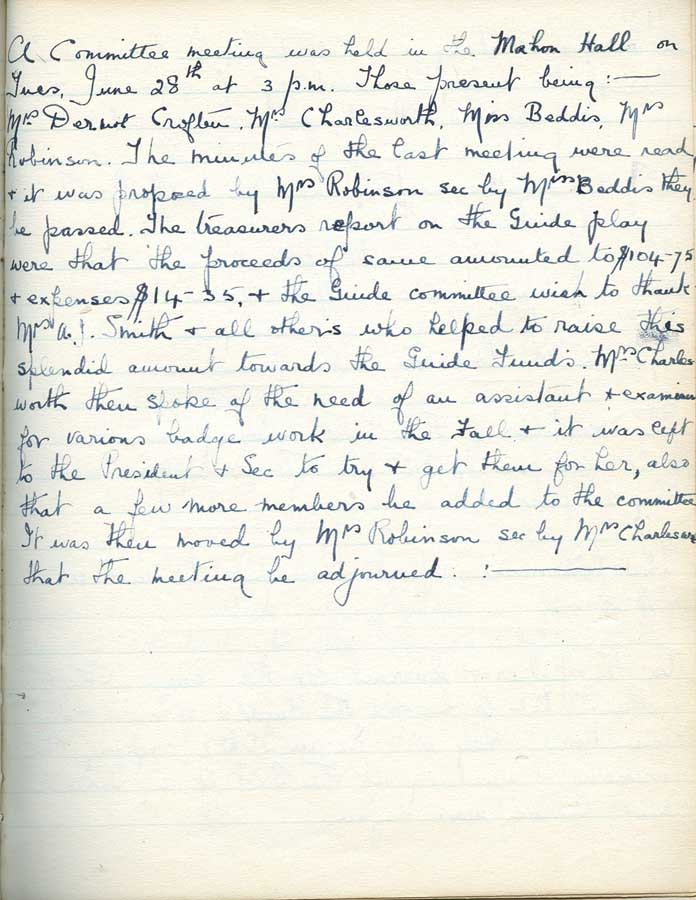 A Committee meeting was held in the Mahon Hall on
Tues, June 28th at 3 p.m. Those present being :—
Mrs Dermot Crofton, Mrs Charlesworth, Miss Beddis, Mrs
Robinson. The minutes of the last meeting were read,
+ it was proposed by Mrs Robinson sec by Miss Beddis they
be passed. The treasurers report on the Guide play
were that the proceeds of same amounted to $104-75
+ expenses $14-35, + the Guide committee wish to thank
Mrs A.J. Smith + all others who helped to raise this
splendid amount towards the Guide Funds. Mrs Charles
worth then spoke of the need of an assistant + examiner
for various badge work in the Fall + it was left
to the President + Sec to try + get them for her, also
that a few more members be added to the committee
It was then moved by Mrs Robinson sec by Mrs Charlesw
that the meeting be adjourned. :—